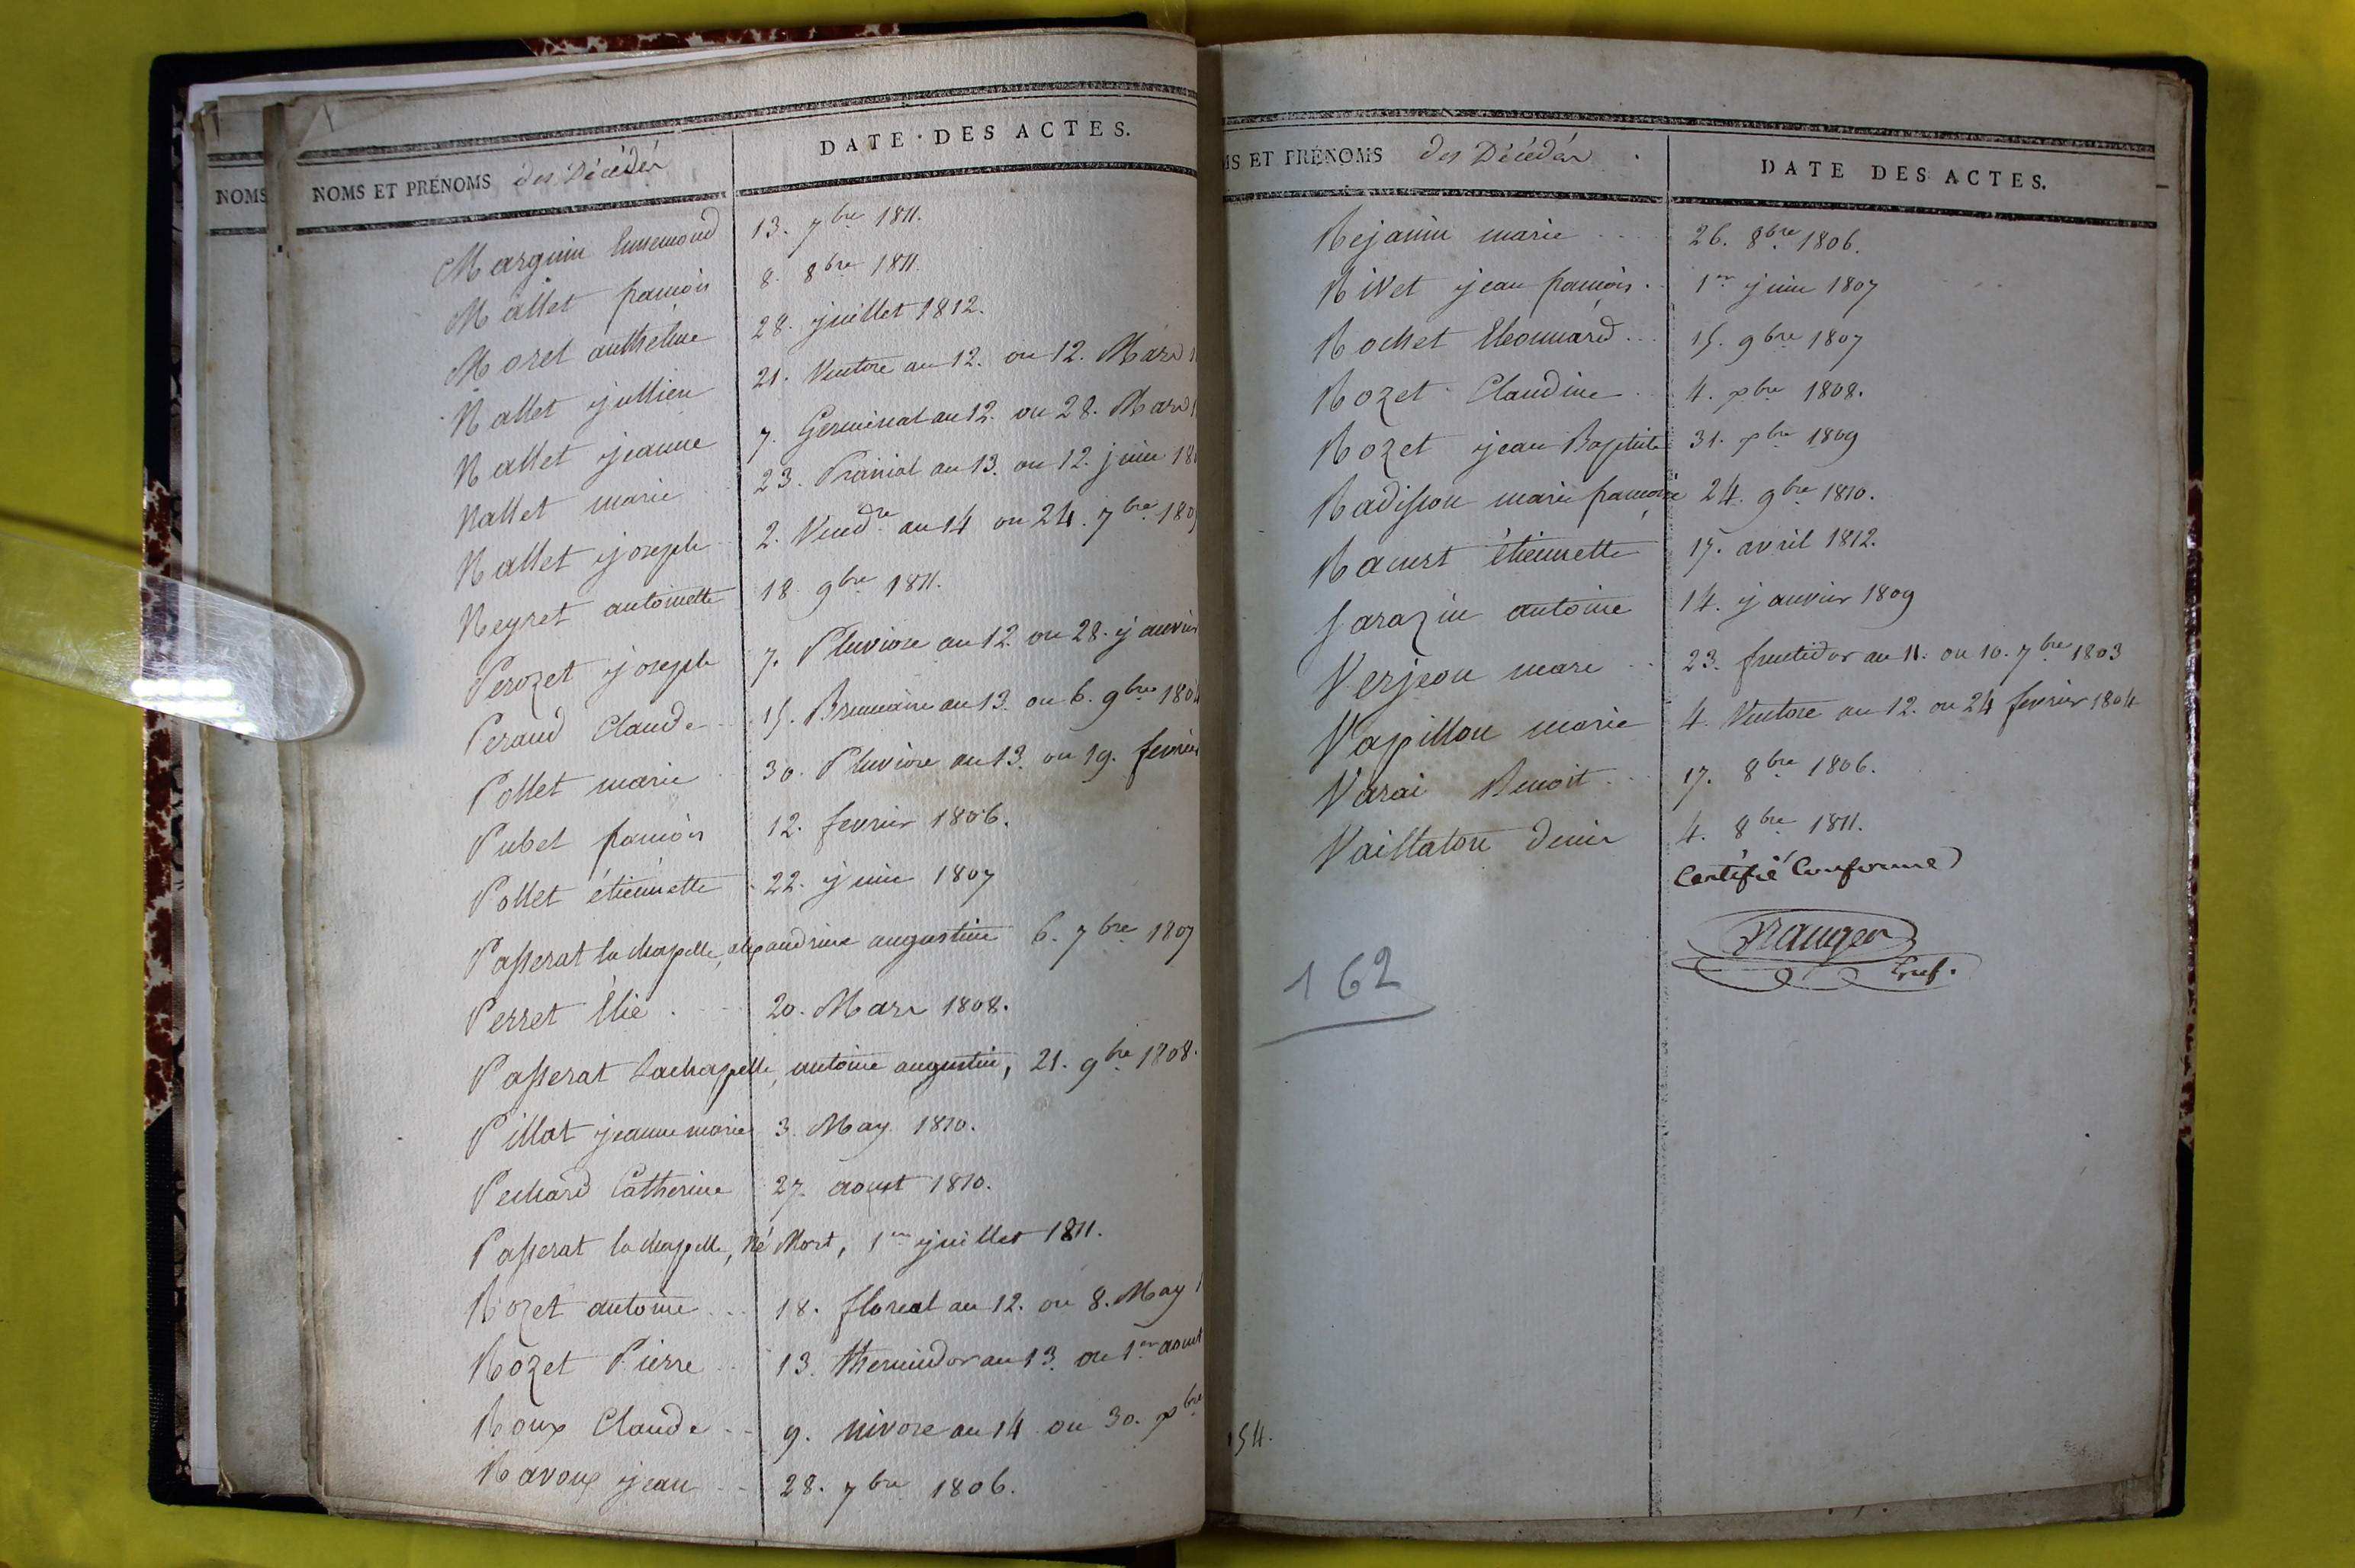 NOMS
NOMS ET PRÉNOMS des Décédés
DATE DES ACTES.
Marguin Ennemond 13. 7bre 1811.
Mallet francois 8. 8bre 1811.
Morel anthelme 28. juillet 1812.
Nallet jullien 21. Ventose an 12. ou 12. Mars 1
Nallet jeanne 7. Germinal an 12. ou 28. Mars 1
Nallet marie 23. Prairial an 13. ou 12. juin 18
Nallet joseph 2. Vendre an 14 ou 24. 7bre 180
Neyret antoinette 18. 9bre 1811.
Perozet joseph 7. Pluviose an 12. ou 28. janvier
Peraud Claude 15. Brumaire an 13. ou 6. 9bre 1804
Pollet marie 30. Pluviose an 13. ou 19. fevrier
Pubet francois 12. fevrier 1806.
Pollet étiennette 22. juin 1807
Passerat la chapelle, alexandrine augustine 6. 7bre 1807
Perret Elie 20. Mars 1808.
Passerat Lachapelle, antoine augustin, 21. 9bre 1808.
Pillot jeanne marie 3. May 1810.
Pechard Catherine 27. aoust 1810.
Passerat la chapelle, Né Mort, 1er juillet 1811.
Rozet antoine 18. floreal an 12. ou 8. May 1
Rozet Pierre 13. thermidor an 13. ou 1er aoust
Roux Claude 9. nivose an 14 ou 30. xbre
Ravoux jean 28. 7bre 1806.
MS ET PRÉNOMS des Décédés
DATE DES ACTES.
Rejanin marie 26. 8bre 1806.
Rivet jean francois 1er juin 1807
Rochet Eleonnard 15. 9bre 1807
Rozet Claudine 4. xbre 1808.
Rozet jean Baptiste 31. xbre 1809
Radisson marie francoise 24. 9bre 1810.
Racurt étiennette 15. avril 1812.
Sarazin antoine 14. janvier 1809
Verjeon marc 23. fructidor an 11. ou 10. 7bre 1803
Vapillon marie 4. Ventose an 12. ou 24 fevrier 1804
Varai Benoit 17. 8bre 1806.
Vaillaton denis 4. 8bre 1811.
Certifié Conforme
162
154.